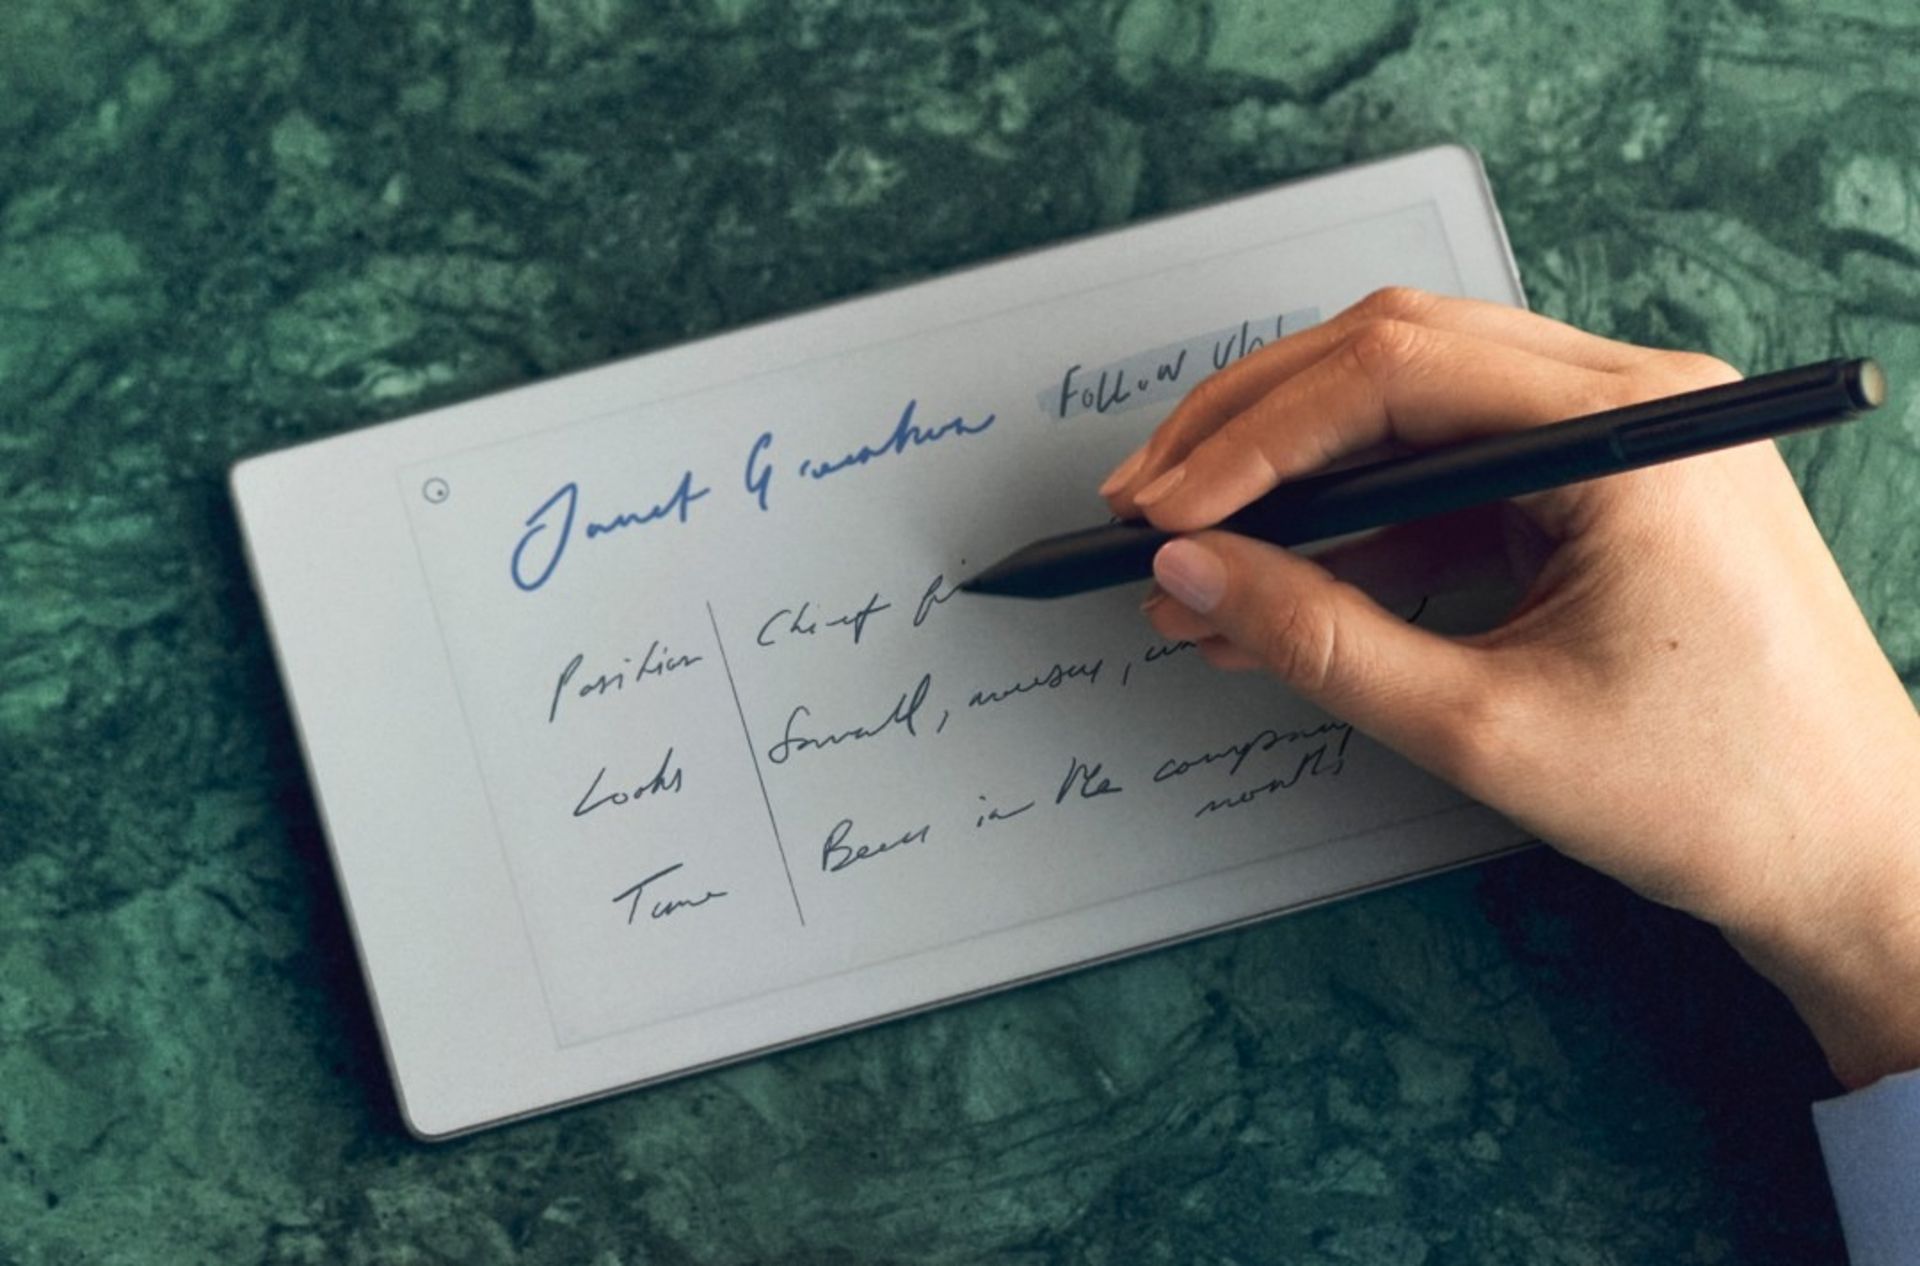 Janet Follow up!
Position Chief fi
Looks Small,
Time Been in the company
months